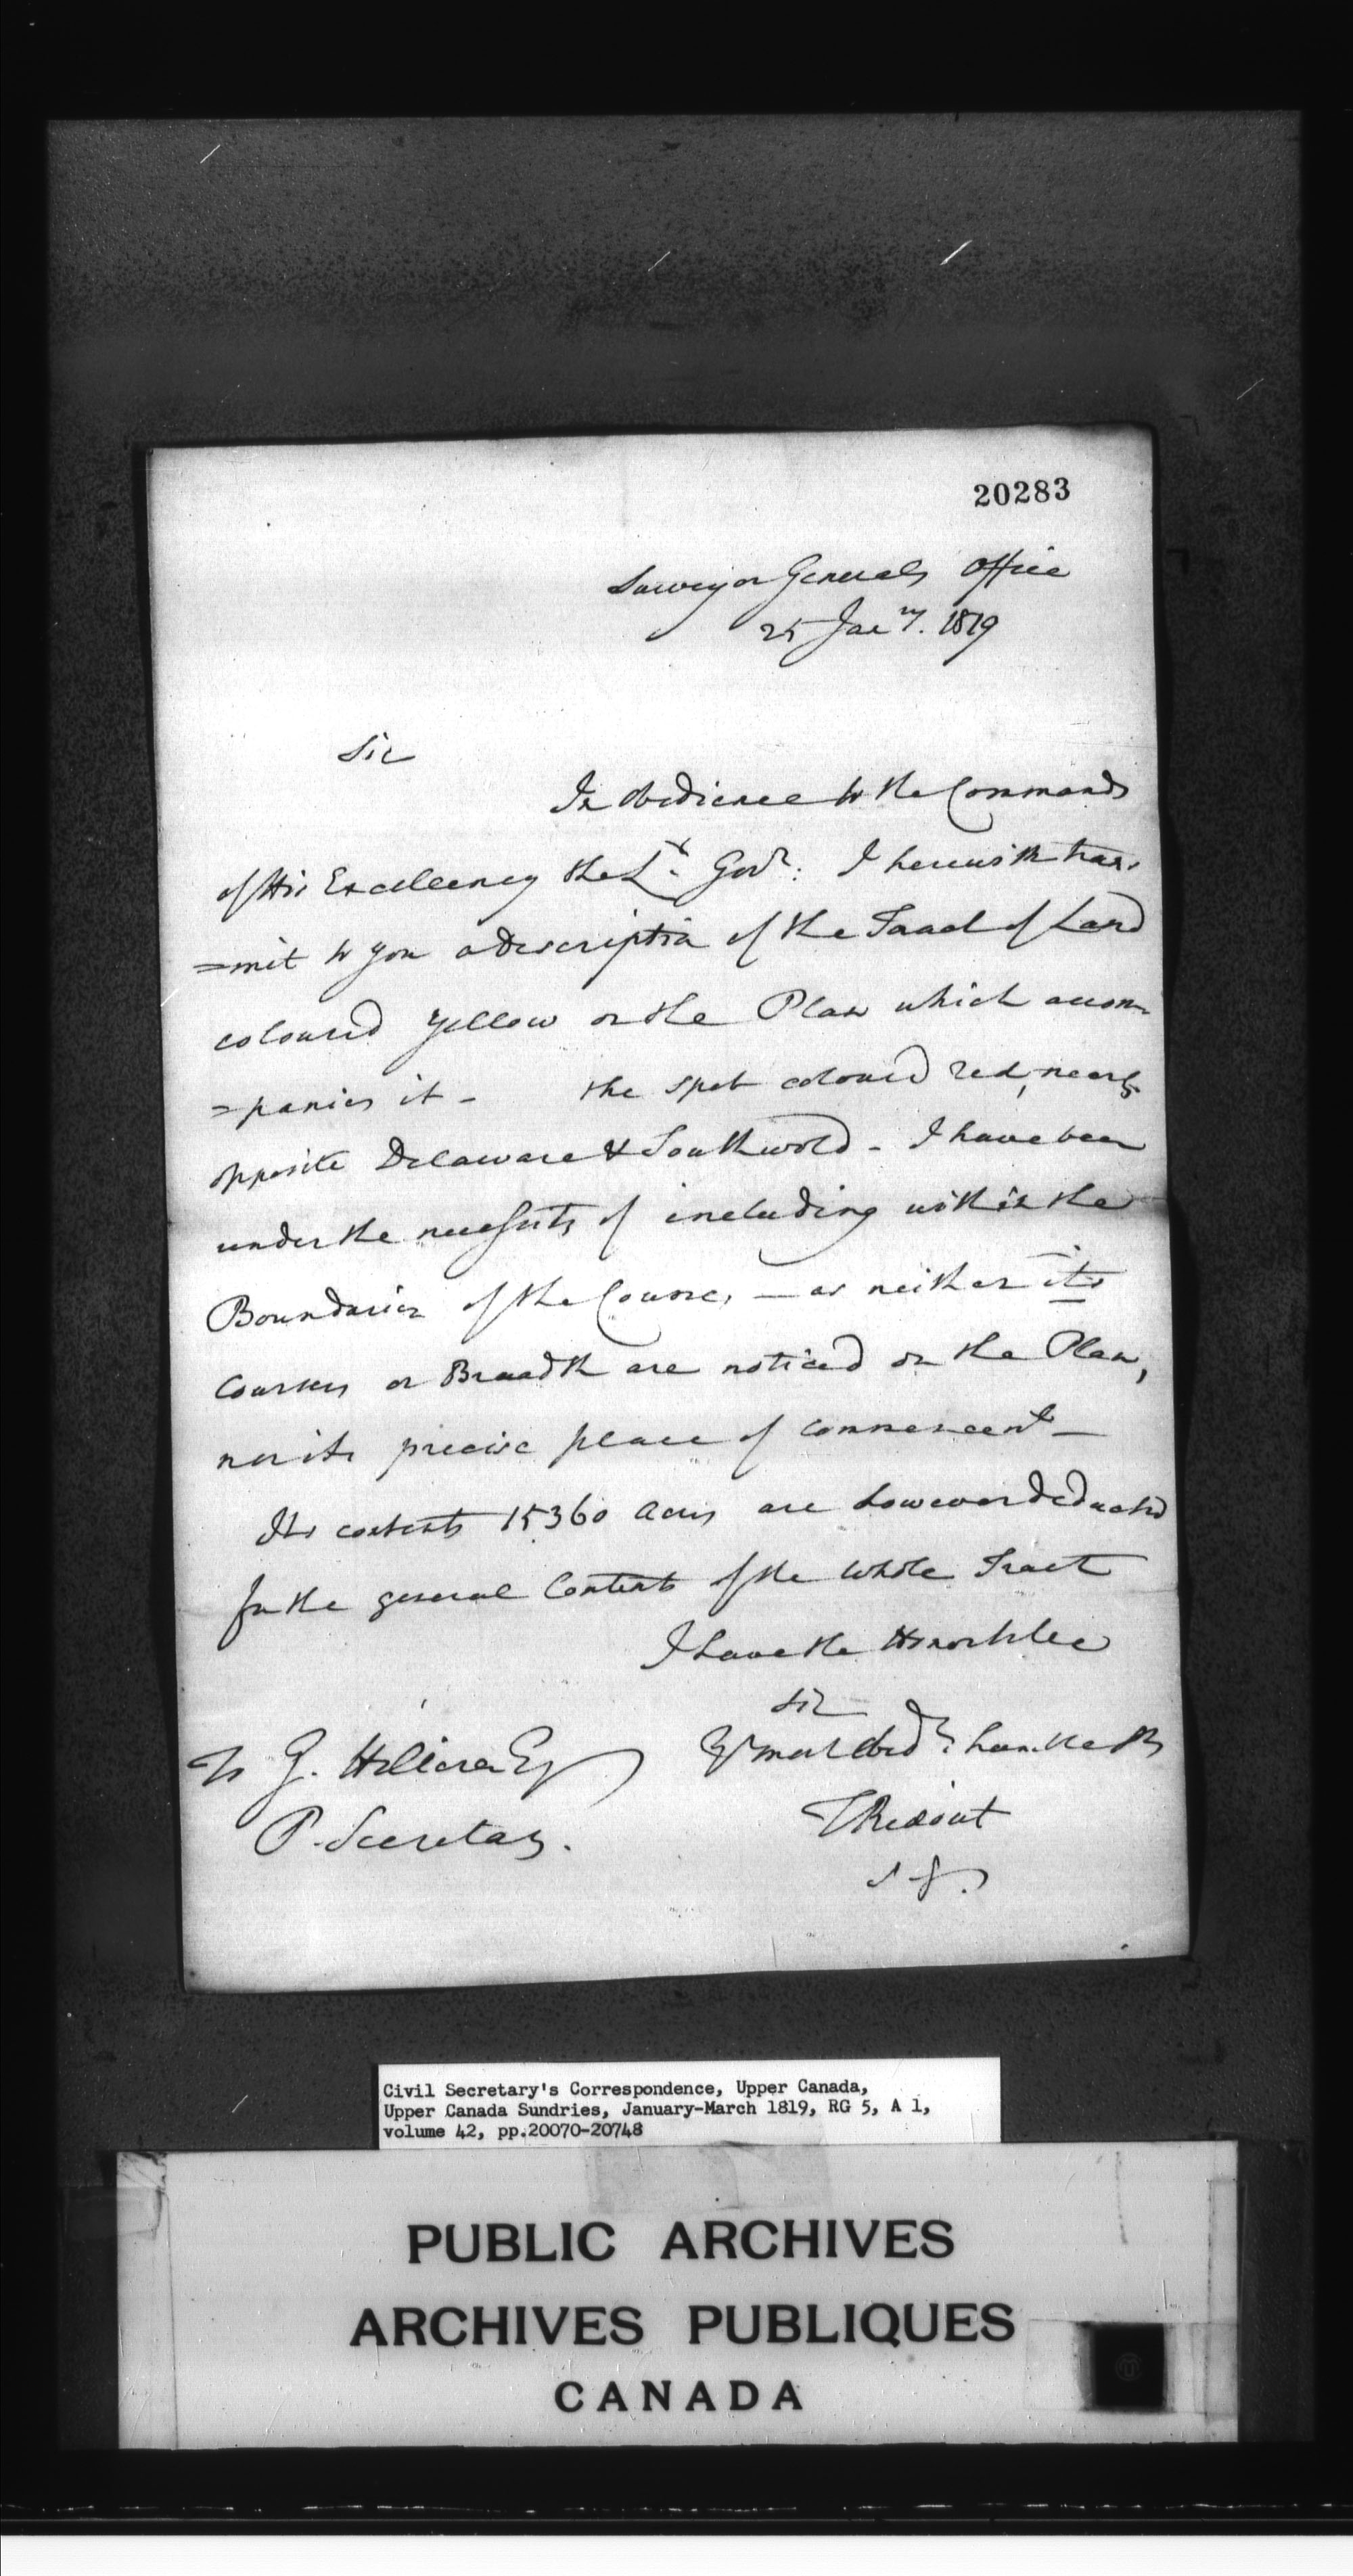 20283
Surveyor Generals Office
25 Jan^ry. 1819
Sir
In obedience to the Commands
of His Excellency the L^t. Gov^r: I herewith trans
=mit to you a description of the Tract of Land
coloured yellow on the Plan which accom
=panies it - the spot coloured red, nearly
opposite Delaware & Southwold - I have been
under the necessity of including within the
Boundaries of the Course, - as neither its
Courses or Breadth are noticed on the Plan,
nor its precise place of commencem^t -
Its contents 15360 Acres are however deducted
from the general Contents of the whole Tract
I have the Honor to be
Sir
Y^r most obed^t humble St
To G. Hillier Esq
T Ridout
P. Secretary.
S G.
Civil Secretary's Correspondence, Upper Canada,
Upper Canada Sundries, January-March 1819, RG 5, A 1,
volume 42, pp.20070-20748
PUBLIC ARCHIVES
ARCHIVES PUBLIQUES
CANADA